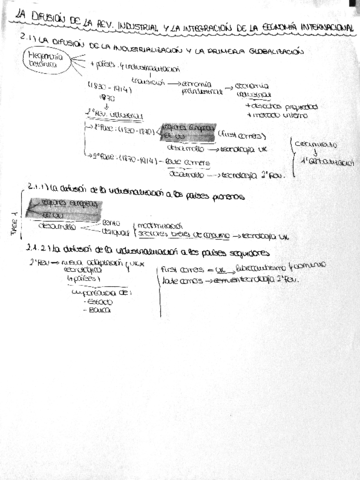 LA DIFUSIÓN DE LA REV. INDUSTRIAL Y LA INTEGRACIÓN DE LA ECONOMÍA INTERNACIONAL
2.1) LA DIFUSIÓN DE LA INDUSTRIALIZACIÓN Y LA PRIMERA GLOBALIZACIÓN
Hegemonía británica
+ países y industrialización
transición → economía preindustrial → economía industrial
(1830-1914)
+ derechos propiedad
+ mercado interno
1870
2ª Rev. industrial
→ 1ª Fase: (1830-1870) regiones europeas EE.UU (first comers)
desarrollo → tecnología UK
→ 2ª Fase: (1870-1914) → late comers
desarrollo → tecnología 2ª Rev.
1ª GLOBALIZACIÓN
2.1.1) La difusión de la industrialización a los países pioneros
FASE 1
regiones europeas
EE.UU
desarrollo
desigual
sectores bienes de consumo → tecnología UK
2.1.2) La difusión de la industrialización a los países seguidores
2ª Rev → nueva adaptación
tecnológica
países
importancia de:
- Estado
- Banca
first comers → UK → librecambismo y comercio
late comers → tecnología 2ª Rev.